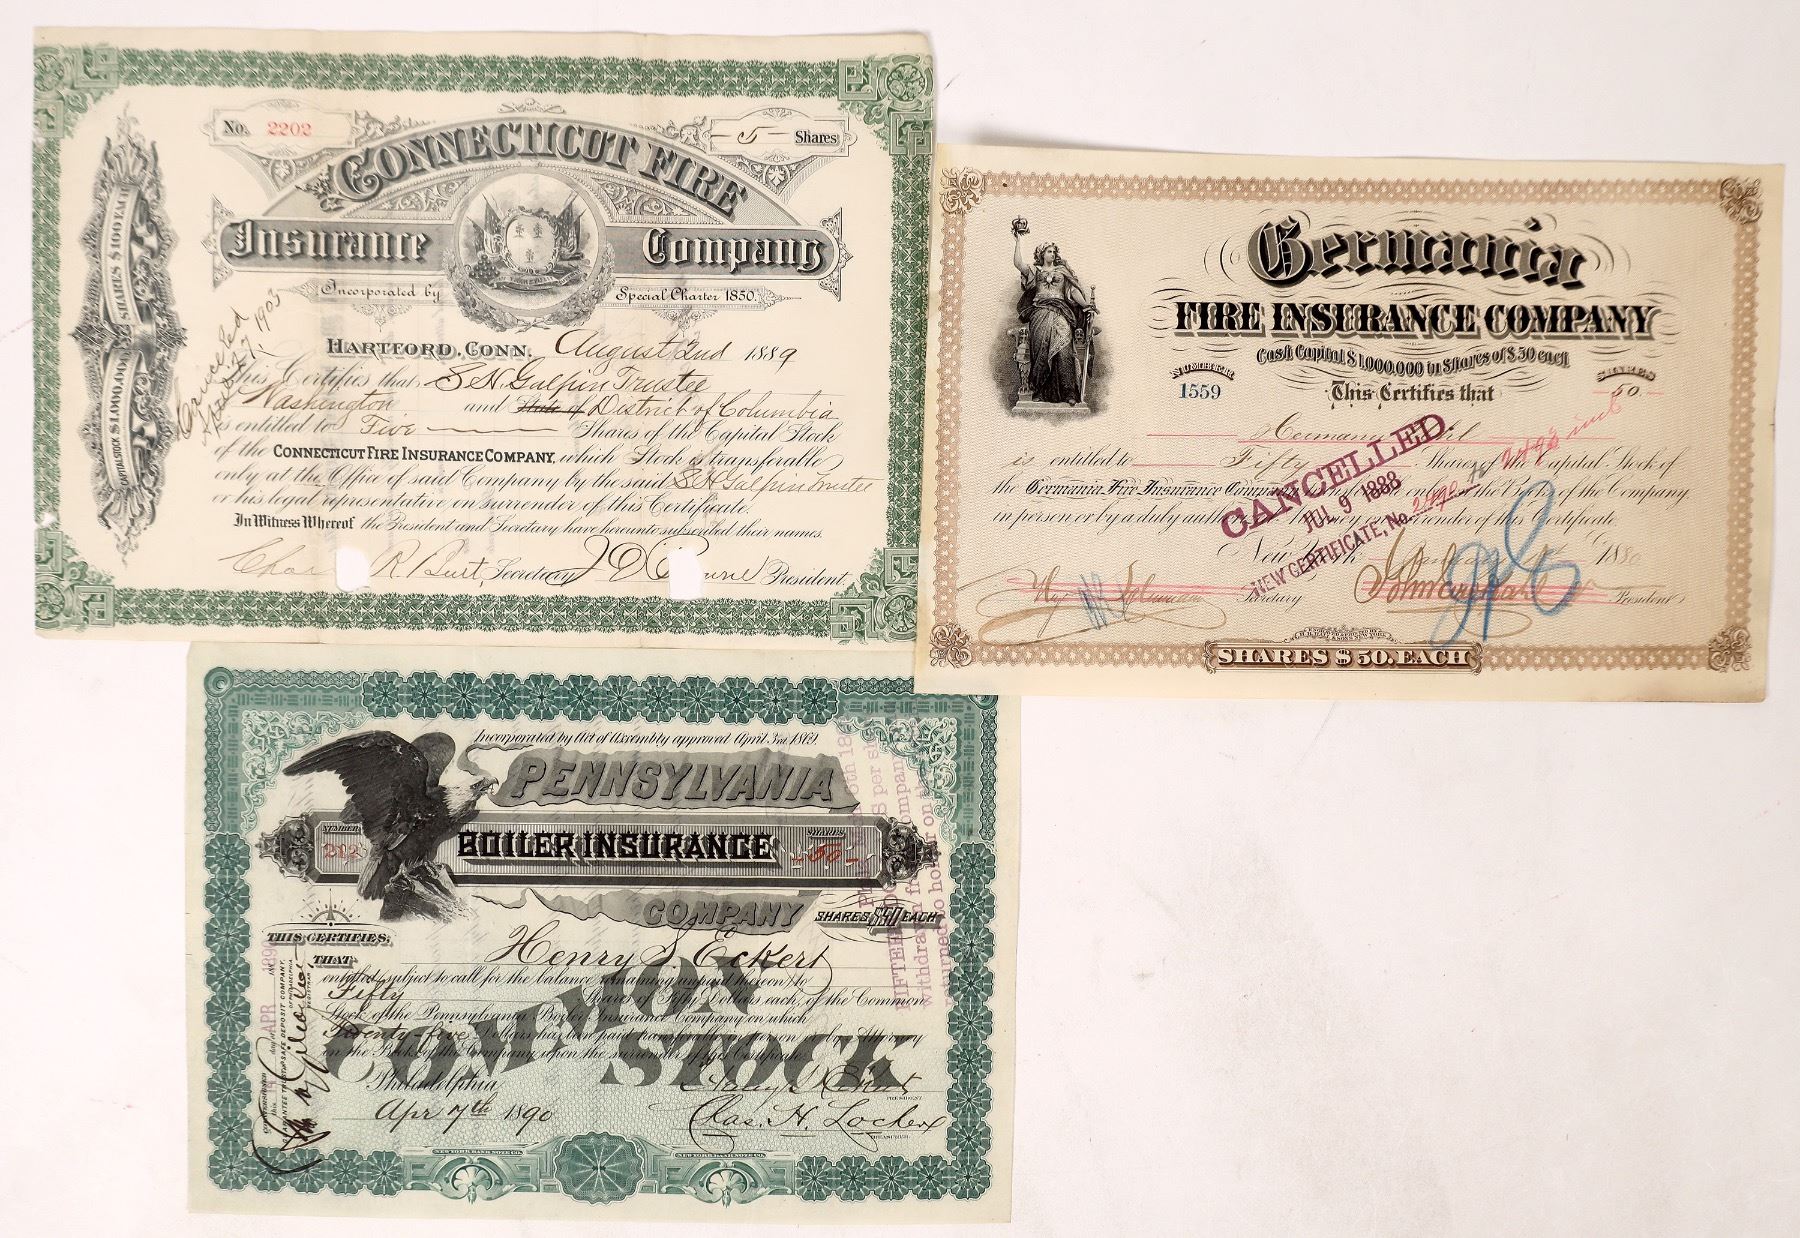 No. 2202
- 5 - Shares
CONNECTICUT FIRE
Insurance Company
Incorporated by Special Charter 1850.
CAPITAL STOCK $1,000,000. SHARES $100 EACH
Cancelled
1903
HARTFORD, CONN. August 2nd 1889
This Certifies that S H Galpin Trustee
Washington and State of District of Columbia
is entitled to Five Shares of the Capital Stock
of the CONNECTICUT FIRE INSURANCE COMPANY, which Stock is transferable
only at the Office of said Company by the said S H Galpin Trustee
or his legal representative on surrender of this Certificate.
In Witness Whereof the President and Secretary have hereunto subscribed their names.
Chas R. Burt, Secretary J D Browne President.
Germania
FIRE INSURANCE COMPANY
Cash Capital $1,000,000 in Shares of $50 each
NUMBER
1559
This Certifies that
SHARES
50
Hermann
is entitled to Fifty Shares of the Capital Stock of
the Germania Fire Insurance Company transferable only on the Books of the Company
in person or by a duly authorized Attorney on surrender of this Certificate
New York 1880
CANCELLED
JUL 9 1888
NEW CERTIFICATE, No. 2490
Secretary
President
SHARES $50. EACH
Incorporated by Act of Assembly approved April 3rd, 1869.
PENNSYLVANIA
NUMBER
202
BOILER INSURANCE
SHARES
- 50 -
COMPANY
SHARES $50 EACH
THIS CERTIFIES
THAT Henry S Eckert
entitled subject to call for the balance remaining unpaid thereon, to
Fifty Shares of Fifty Dollars each, of the Common
Stock of the Pennsylvania Boiler Insurance Company, on which
Twenty five Dollars has been paid transferable in person or by Attorney
on the Books of the Company upon the surrender of this Certificate.
COMMON STOCK
Philadelphia
Apr 7th 1890
Henry S Eckert
PRESIDENT
Chas. H. Locher
TREASURER
NEW YORK BANK NOTE CO.
NEW YORK BANK NOTE CO.
COUNTERSIGNED
this 14 day of APR 1890
GUARANTEE TRUST & SAFE DEPOSIT COMPANY,
OF PHILADELPHIA
REGISTRAR
FIFTEEN
withdrawn
returned to